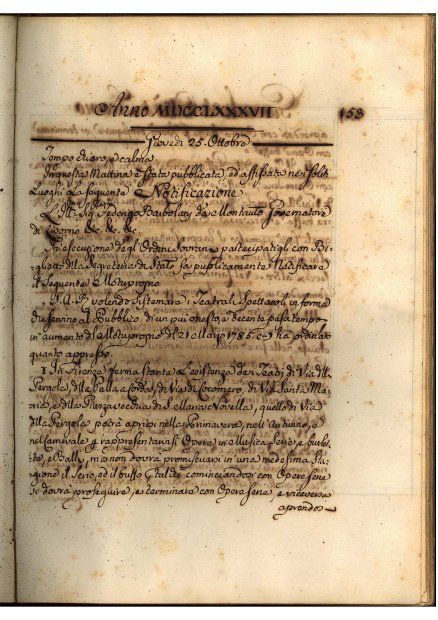 Anno MDCCLXXXVII 153
Giovedì 25. Ottobre
Tempo chiaro, e calma
In questa Mattina è stata pubblicata, ed affissata nei soliti
Luoghi la seguente Notificazione
L'Ill: Sig: Federigo Barbolani da Montauto Governatore
di Livorno &c. &c. &c.
In esecuzione degl'Ordini Sovrani partecipatigli con Bi-
glietto della Segreteria di Stato fa pubblicamente Notificare
il seguente Motuproprio
S. A. R. volendo Sistemare i Teatrali Spettacoli in forma
che servino al Pubblico di un più onesto, e decente passatempo
in aumento del Motuproprio del 21 Maggio 1785. ha ordinato
quanto appresso.
1. In Firenze ferma stante l'esistenza de Teatri di Via della
Pergola, della Palla a Corda, di Via del Cocomero, di Via Santa Ma-
ria, e della Piazza vecchia di S. Maria Novella, quello di Via
della Pergola potrà aprirsi nella Primavera, nell'Autunno, e
nel Carnevale per rappresentarvisi Opere in Musica Serie, e burlet-
te, e Balli, ma non dovrà promiscuarsi in una medesima Sta-
gione il Serio, ed il buffo, talché cominciandosi con Opere serie
si dovrà proseguire, e terminare con Opere serie, e viceversa
aprendosi